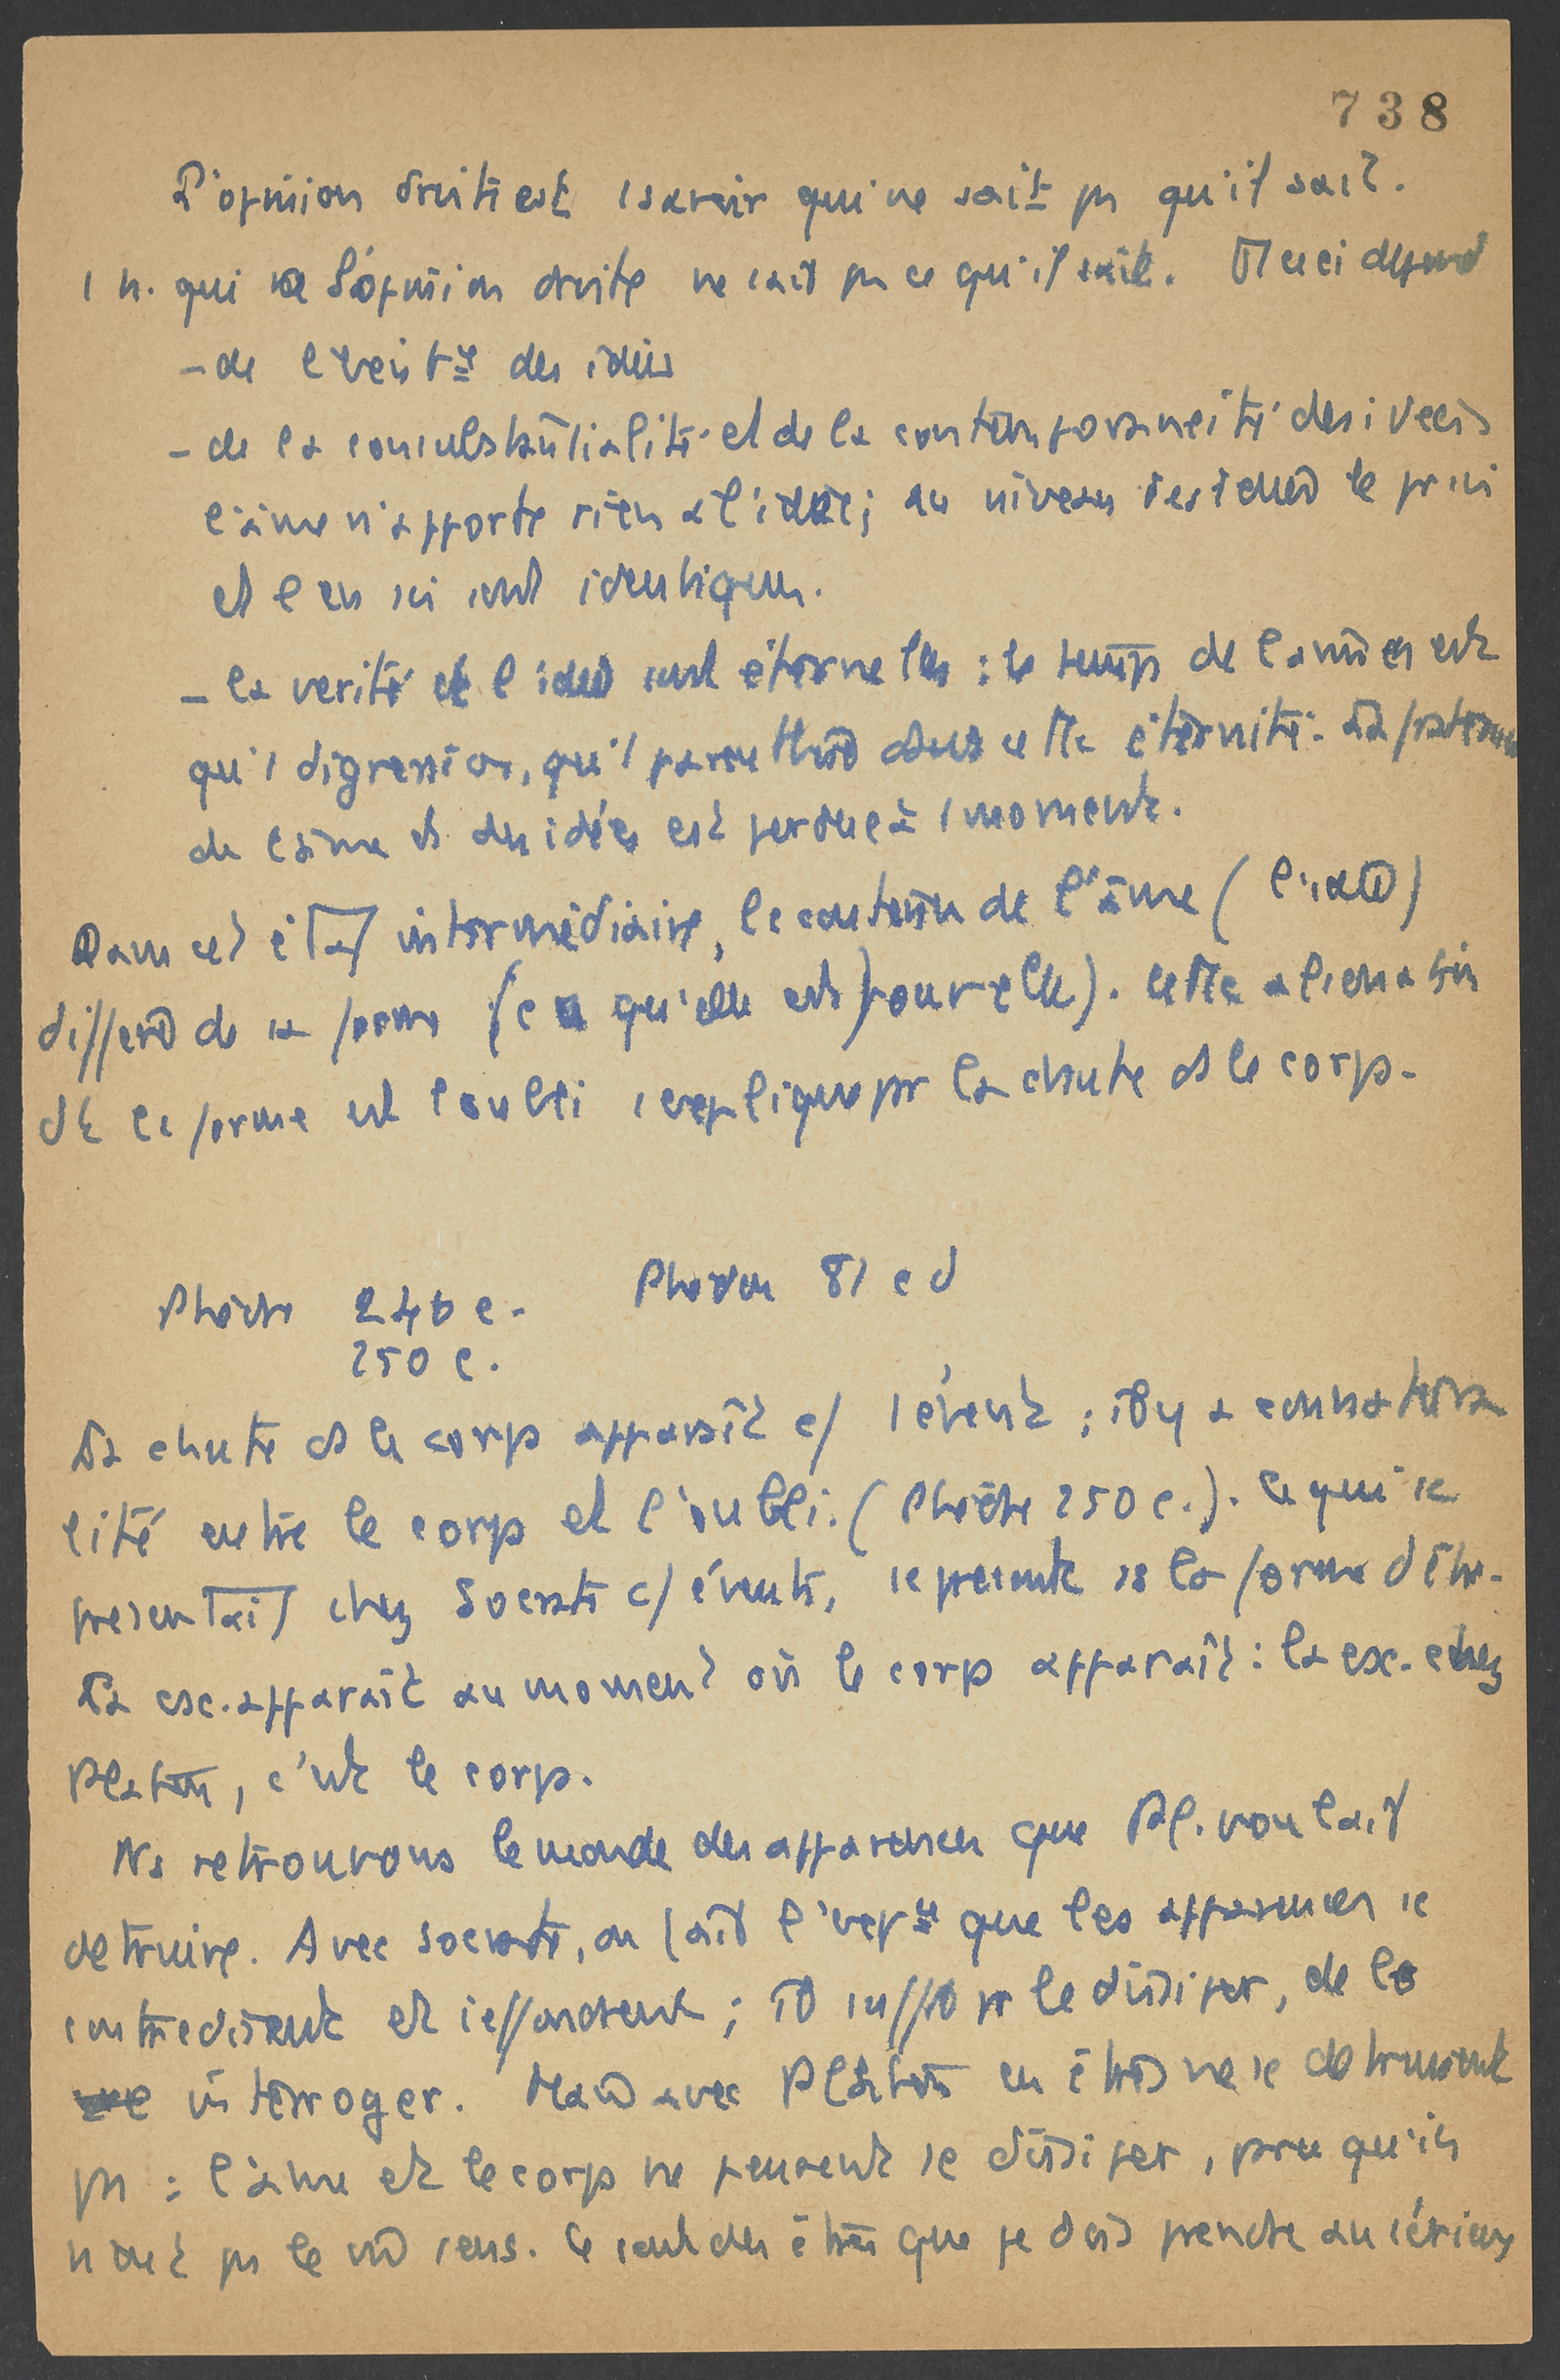 738
L'opinion droite est 1 savoir qui ne sait pas qu'il sait.
1 h. qui a l'opinion droite ne sait pas ce qu'il sait. Et ceci depend
- de l'exist ce des idées
- de la consubstantialité et de la contemporaneité des idées
l'âme n'apporte rien à l'idée; au niveau de l'idée le pr soi
et l'en soi sont identiques.
- la verité et l'idée sont éternelles : le temps de la vie n'est
qu'1 digression, qu'1 parenthèse dans cette éternité. La
de l'âme et des idées est perdue à 1 moment.
Dans cet état intermédiaire, le contenu de l'âme (l'idée)
differe de sa forme (ce qu'elle est pour elle). Cette alienation
de la forme est l'oubli s'explique par la chute ds le corps.
Phèdre 246 c. Phédon 81 c d
250 c.
La chute ds le corps apparaît c/ 1 évent ; il y a connatura
lité entre le corps et l'oubli. (Phèdre 250 c.). Ce qui se
presentait chez Socrate c/ évent, se presente ss la forme d'être.
La esc. apparaît au moment où le corps apparaît : la esc. chez
Platon, c'est le corps.
Ns retrouvons le monde des apparences que Pl. voulait
detruire. Avec Socrate, on fait l'exp ce que les apparences se
contredisent et s'effondrent ; il suffit pr le dissiper, de le
interroger. Mais avec Platon les êtres ne se detruisent
pas : l'âme et le corps ne peuvent se dissiper, parce qu'ils
n'ont pas le mê sens. Ce sont des êtres que je dois prendre au sérieux